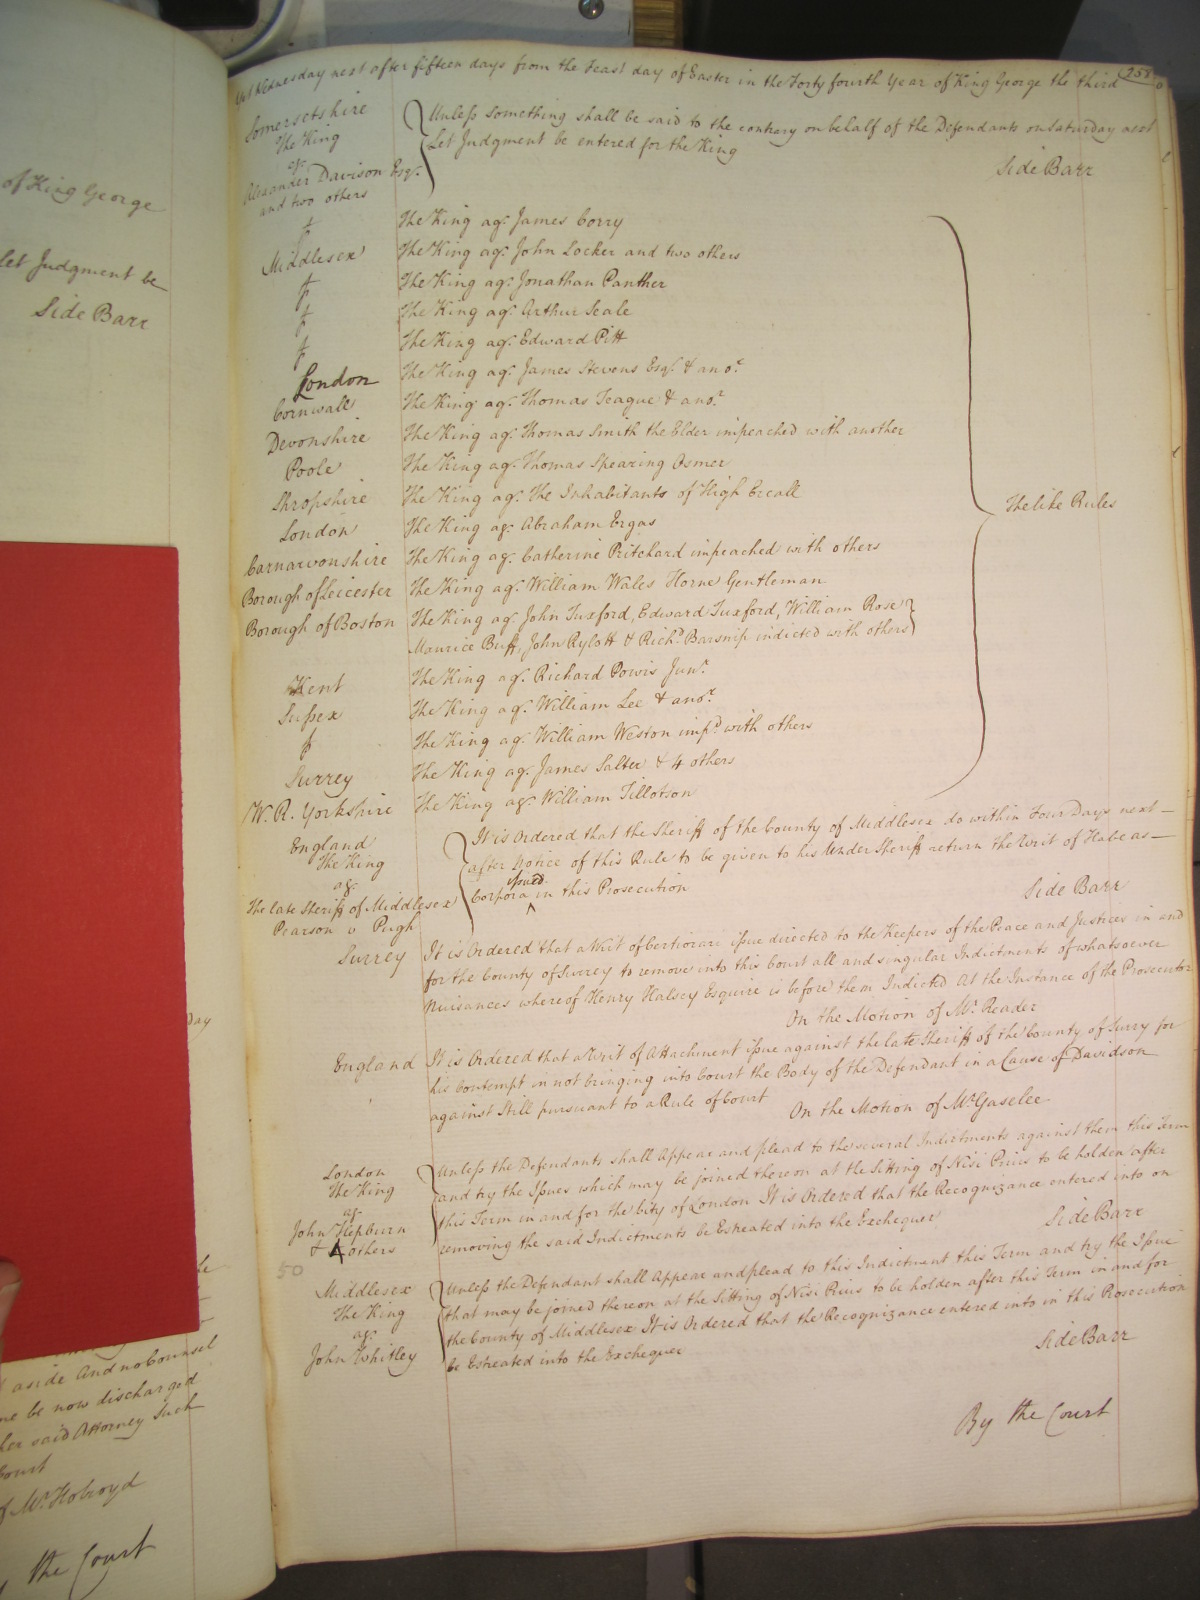 of King George
Let Judgment be
Side Barr
Day
aside And no Counsel
me be now discharged
her said Attorney Such
Court
of Mr. Holroyd
the Court
On Wednesday next after fifteen days from the Feast day of Easter in the Forty fourth Year of King George the third
Somersetshire
The King
agt.
Alexander Davison Esqr.
and two others
Unless something shall be said to the contrary on behalf of the Defendants on Saturday next
Let Judgment be entered for the King
Side Barr
The King agt. James Corry
Middlesex The King agt. John Locker and two others
The King agt. Jonathan Panther
The King agt. Arthur Seale
The King agt. Edward Pitt
London The King agt. James Stevens Esqr. & anor.
Cornwall The King agt. Thomas Teague & anor.
Devonshire The King agt. Thomas Smith the Elder impeached with another
Poole The King agt. Thomas Spearing Osmer
Shropshire The King agt. The Inhabitants of High Ercall
The like Rules
London The King agt. Abraham Ergas
Carnarvonshire The King agt. Catherine Pritchard impeached with others
Borough of Leicester The King agt. William Wales Horne Gentleman
Borough of Boston The King agt. John Tuxford, Edward Tuxford, William Rose
Maurice Buff, John Rylott & Richd. Barsnip indicted with others
Kent The King agt. Richard Powis Junr.
Sussex The King agt. William Lee & anor.
The King agt. William Weston impd. with others
Surrey The King agt. James Salter & 4 others
W. R. Yorkshire The King agt. William Tillotson
England
The King
agt.
The late Sheriff of Middlesex
Pearson v Pugh
It is Ordered that the Sheriff of the County of Middlesex do within Four Days next
after Notice of this Rule to be given to his Under Sheriff return the Writ of Habeas
Corpora issued in this Prosecution
Side Barr
Surrey It is Ordered that a Writ of Certiorari issue directed to the Keepers of the Peace and Justices in and
for the County of Surrey to remove into this Court all and singular Indictments of whatsoever
Nuisances whereof Henry Halsey Esquire is before them Indicted At the Instance of the Prosecutor
On the Motion of Mr. Reader
England It is Ordered that a Writ of Attachment issue against the late Sheriff of the County of Surry for
his Contempt in not bringing into Court the Body of the Defendant in a Cause of Davidson
against Still pursuant to a Rule of Court
On the Motion of Mr. Gaselee
London
The King
agt.
John Hepburn
& 4 others
Unless the Defendants shall Appear and plead to the several Indictments against them this Term
and try the Issues which may be joined thereon at the Sitting of Nisi Prius to be holden after
this Term in and for the City of London It is Ordered that the Recognizance entered into on
removing the said Indictments be Estreated into the Exchequer
Side Barr
50
Middlesex
The King
agt.
John Whitley
Unless the Defendant shall Appear and plead to this Indictment this Term and try the Issue
that may be joined thereon at the Sitting of Nisi Prius to be holden after this Term in and for
the County of Middlesex It is Ordered that the Recognizance entered into in this Prosecution
be Estreated into the Exchequer
Side Barr
By the Court